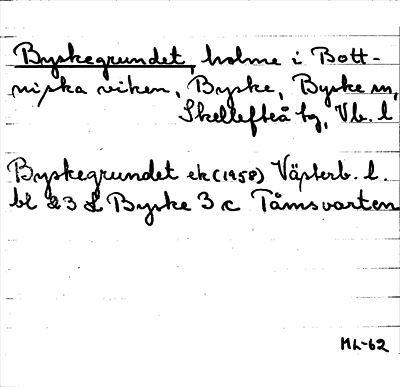 Byskegrundet, holme i Bott-
niska viken, Byske, Byske sn,
Skellefteå tg, Vb. l
Byskegrundet ek (1958) Västerb. l.
bl 23 L Byske 3 c Tåmsvarten
ML-62